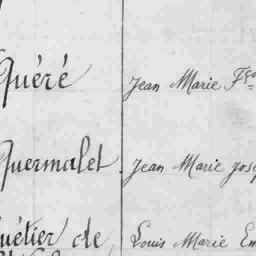 Quéré Jean Marie Fço
Quermalet Jean Marie Jose
Quétier de Louis Marie Em